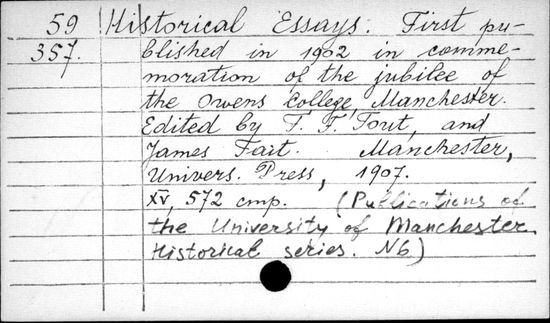 59 Historical Essays. First pu-
357. blished in 1902 in comme-
moration of the jubilee of
the Owens College, Manchester.
Edited by T. F. Tout, and
James Tait. Manchester,
Univers. Press, 1907.
XV, 572 cmp. (Publications of
the University of Manchester
Historical series. N6.)